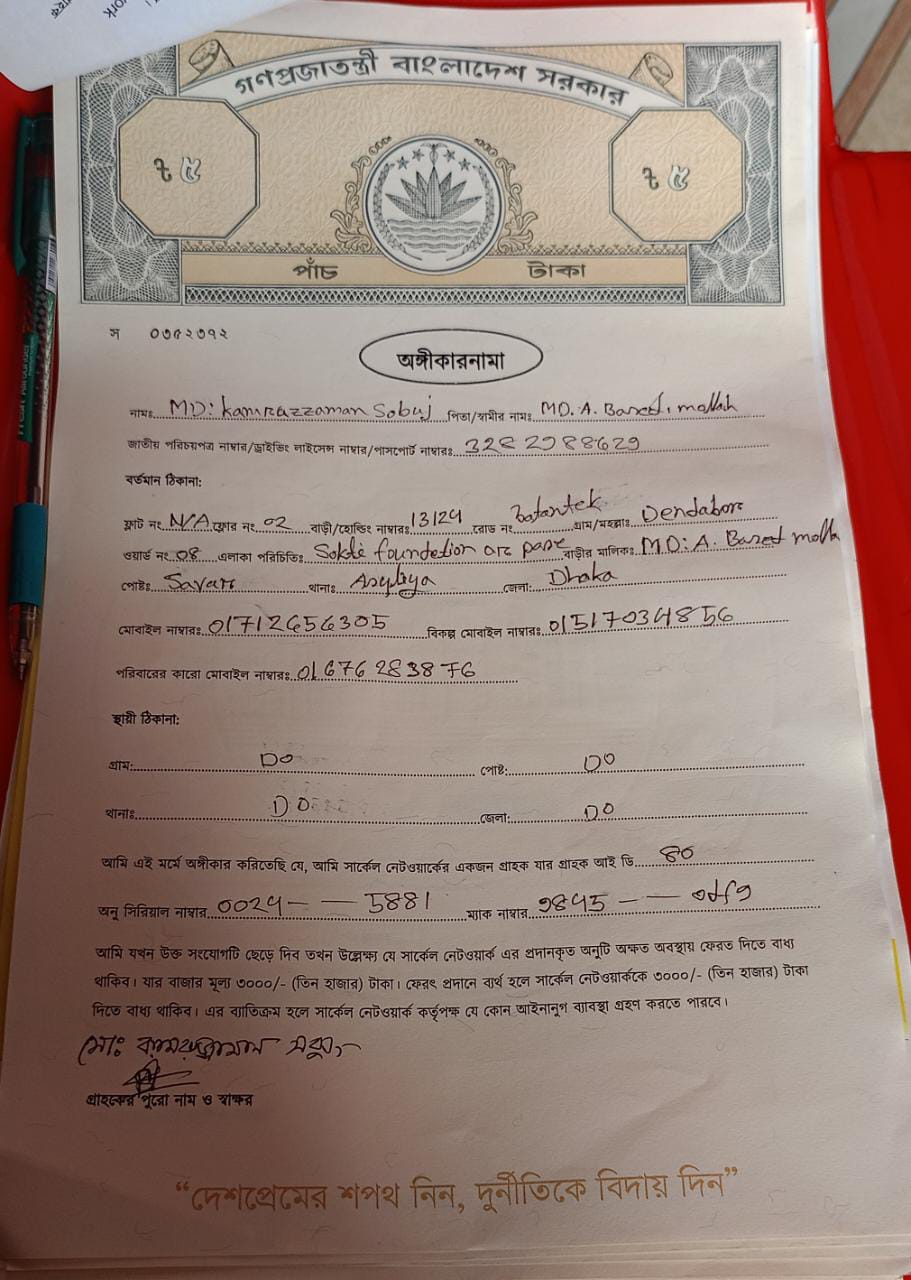 গণপ্রজাতন্ত্রী বাংলাদেশ সরকার
৳ ৫ ৳ ৫
পাঁচ টাকা
স ০৩৫২৩৭২
অঙ্গীকারনামা
নামঃ MD: Kamrazzaman Sobuj পিতা/স্বামীর নাম: MD. A. Bared mollah
জাতীয় পরিচয়পত্র নাম্বার/ড্রাইভিং লাইসেন্স নাম্বার/পাসপোর্ট নাম্বারঃ 3282988629
বর্তমান ঠিকানা:
ফ্লাট নং N/A ফ্লোর নং 02 বাড়ী/হোল্ডিং নাম্বারঃ 13124 রোড নং Batantek গ্রাম/মহল্লাঃ Dendabor
ওয়ার্ড নং 08 এলাকা পরিচিতিঃ foundetion বাড়ীর মালিকঃ MD: A. Bared molla
পোষ্টঃ Savar থানাঃ জেলা: Dhaka
মোবাইল নাম্বারঃ 01712656305 বিকল্প মোবাইল নাম্বারঃ 01517034856
পরিবারের কারো মোবাইল নাম্বারঃ 01676283876
স্থায়ী ঠিকানা:
গ্রাম: DO পোষ্ট: DO
থানাঃ DO জেলা: DO
আমি এই মর্মে অঙ্গীকার করিতেছি যে, আমি সার্কেল নেটওয়ার্কের একজন গ্রাহক যার গ্রাহক আই ডি 80
অনু সিরিয়াল নাম্বার 0024 — — 5881 ম্যাক নাম্বার 9845 — —
আমি যখন উক্ত সংযোগটি ছেড়ে দিব তখন উল্লেক্ষ্য যে সার্কেল নেটওয়ার্ক এর প্রদানকৃত অনুটি অক্ষত অবস্থায় ফেরত দিতে বাধ্য
থাকিব। যার বাজার মূল্য ৩০০০/- (তিন হাজার) টাকা। ফেরৎ প্রদানে ব্যর্থ হলে সার্কেল নেটওয়ার্ককে ৩০০০/- (তিন হাজার) টাকা
দিতে বাধ্য থাকিব। এর ব্যাতিক্রম হলে সার্কেল নেটওয়ার্ক কর্তৃপক্ষ যে কোন আইনানুগ ব্যাবস্থা গ্রহণ করতে পারবে।
মোঃ কামরুজ্জামান সবুজ
গ্রাহকের পুরো নাম ও স্বাক্ষর
“দেশপ্রেমের শপথ নিন, দুর্নীতিকে বিদায় দিন”